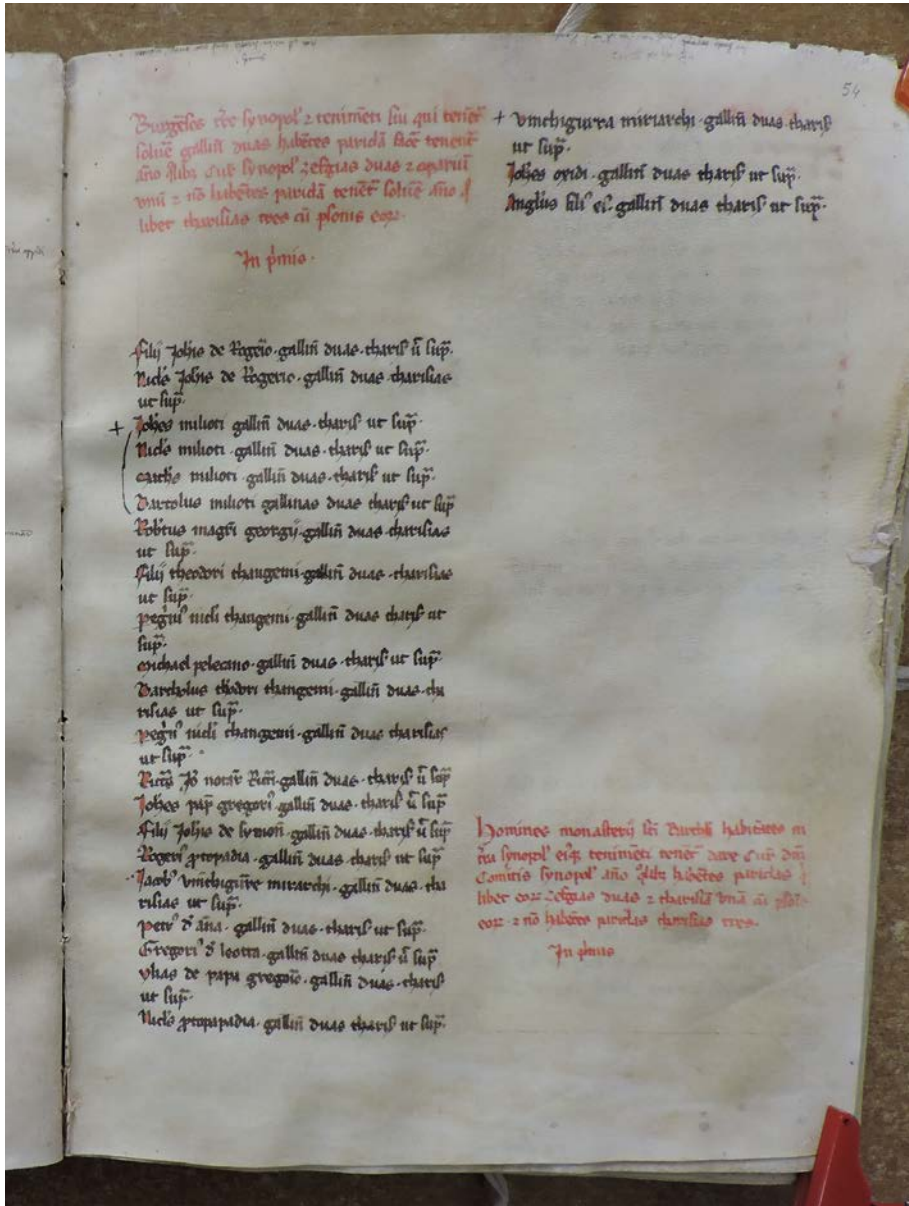 54
Burgẽses t̃re synopol' ⁊ tenimẽti sui qui tenẽt̃
solue᷒ gallin̄ duas habẽtes pariclã facẽ tenent̃
año q̃lib; Cur̃ synopol' zesgias duas ⁊ oparium
vnũ ⁊ nõ habẽtes pariclã tenẽt̃ solue᷒ año q̃
libet tharisias tres cũ p̱sonis eoꝝ.
In p̃mis.
Filij Joh̃is de Rogerio. gallin̄ duas. tharis' ũ sup̃.
Nicl's Joh̃is de Rogerio. gallin̄ duas. tharisias
ut sup̃.
+ Joh̃es milioti gallin̄ duas tharis' ut sup̃.
Nicl's milioti. gallin̄ duas. tharis' ut sup̃.
milioti. gallin̄ duas. tharis' ut sup̃.
Bartolus milioti gallinas duas tharis' ut sup̃
Rob̃tus magr̃i georgij. gallin̄ duas. tharisias
ut sup̃.
Filij theodori changemi. gallin̄ duas. tharisias
ut sup̃.
Peg̃in' nicl'i changemi. gallin̄ duas. tharis' ut
sup̃.
Michael pelecano. gallin̄ duas. tharis' ut sup̃.
Bartholus changemi. gallin̄ duas. tha
risias ut sup̃.
Peg̃in' nicl'i changemi. gallin̄ duas tharisias
ut sup̃.
Ricc̃s Jo᷒ notar̃ Ricc̃i. gallin̄ duas. tharis' ũ sup̃
Joh̃es pap̃ gregori'. gallin̄ duas. tharis' ũ sup̃
Filij Joh̃is de symon̄. gallin̄ duas. tharis' ũ sup̃
Rogeri' ꝓtopadia. gallin̄ duas. tharis' ut sup̃.
Jacob' vinchigurre mirarchi. gallin̄ duas. tha
risias ut sup̃.
Petr' d' ãna. gallin̄ duas. tharis' ut sup̃.
Gregori' d' leotta. gallin̄ duas tharis' ũ sup̃
vlias de papa gregorio. gallin̄ duas. tharis'
ut sup̃.
Nicl's ꝓtopapadia. gallin̄ duas tharis' ut sup̃.
+ Vinchigurra miriarchi. gallin̄ duas tharis'
ut sup̃.
Joh̃es oxidi. gallin̄ duas tharis' ut sup̃.
Angl'us fili' ei'. gallin̄ duas tharis' ut sup̃.
Homines monasterij sc̃i Barthl'i habitãtes in
t̃ra synopol' eiq̃ tenimẽti tenẽt̃ dare Cur̃ dñi
Comitis synopol' año q̃lib; habẽtes pariclas q̃
libet eoꝝ zesgias duas ⁊ tharisiã vnã cũ p̱so'
eoꝝ ⁊ nõ habẽtes pariclas tharisias tres.
In p̃mis